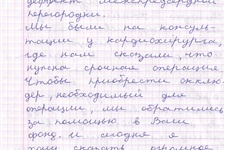 дефект межпредсердной
перегородки.
Мы были на консуль-
тации у кардиохирурга,
где нам сказали, что
нужна срочная операция.
Чтобы приобрести окклю-
дер, необходимый для
операции, мы обратились
за помощью в Ваш
фонд. И сегодня я
хочу сказать огромное